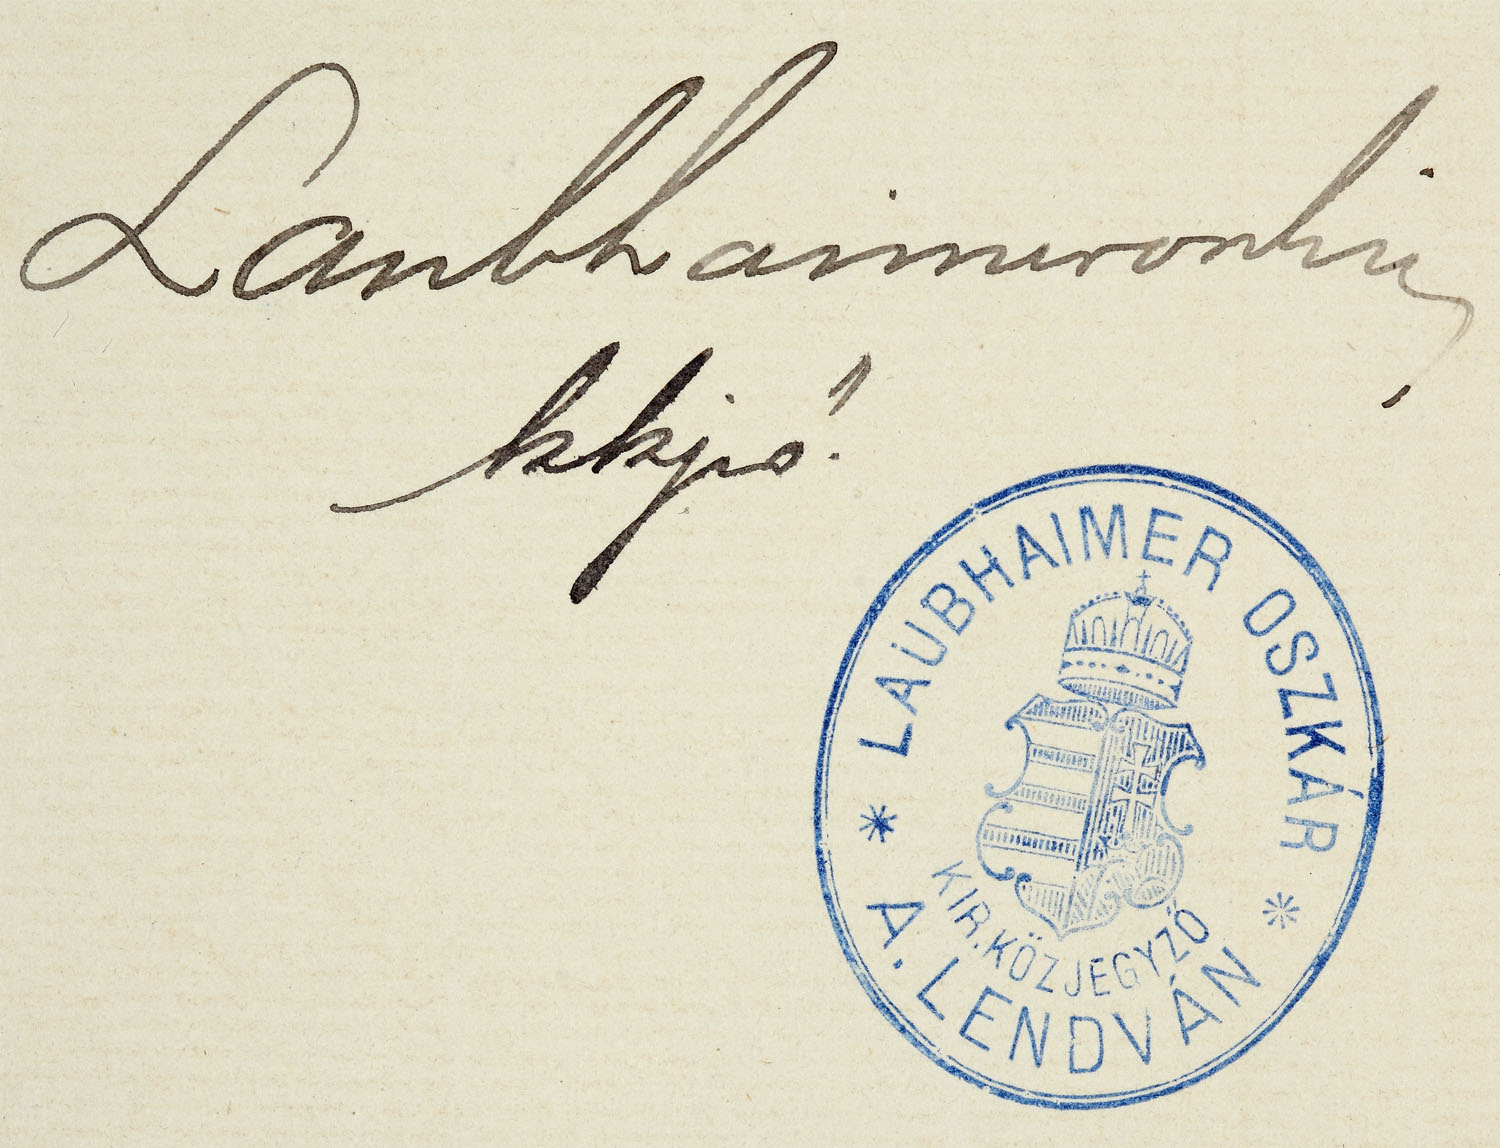 Laubhaimeroszkár
kkjző!
LAUBHAIMER OSZKÁR
KIR.KÖZJEGYZŐ
* A. LENDVÁN *